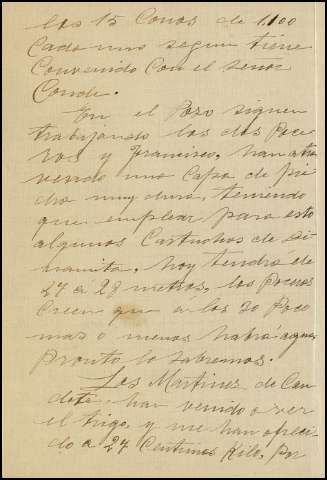 los 15 Conos de 1.100
Cada uno segun tiene
Convenido Con el señor
Conde.
En el Pozo siguen
trabajando los dos Poce
ros y Francisco, han atra
vesado una Capa de pie
dra muy dura, teniendo
que emplear para esto
algunos Cartuchos de di
namita, hoy tendra de
27 á 28 metros, los Poceros
Creen que á los 30 Poco
mas o menos habrá agua,
Pronto lo sabremos.
Los Martines de Cau
dete, han venido a ver
el trigo, y me han ofreci
do a 27 Centimos Kilo, Por